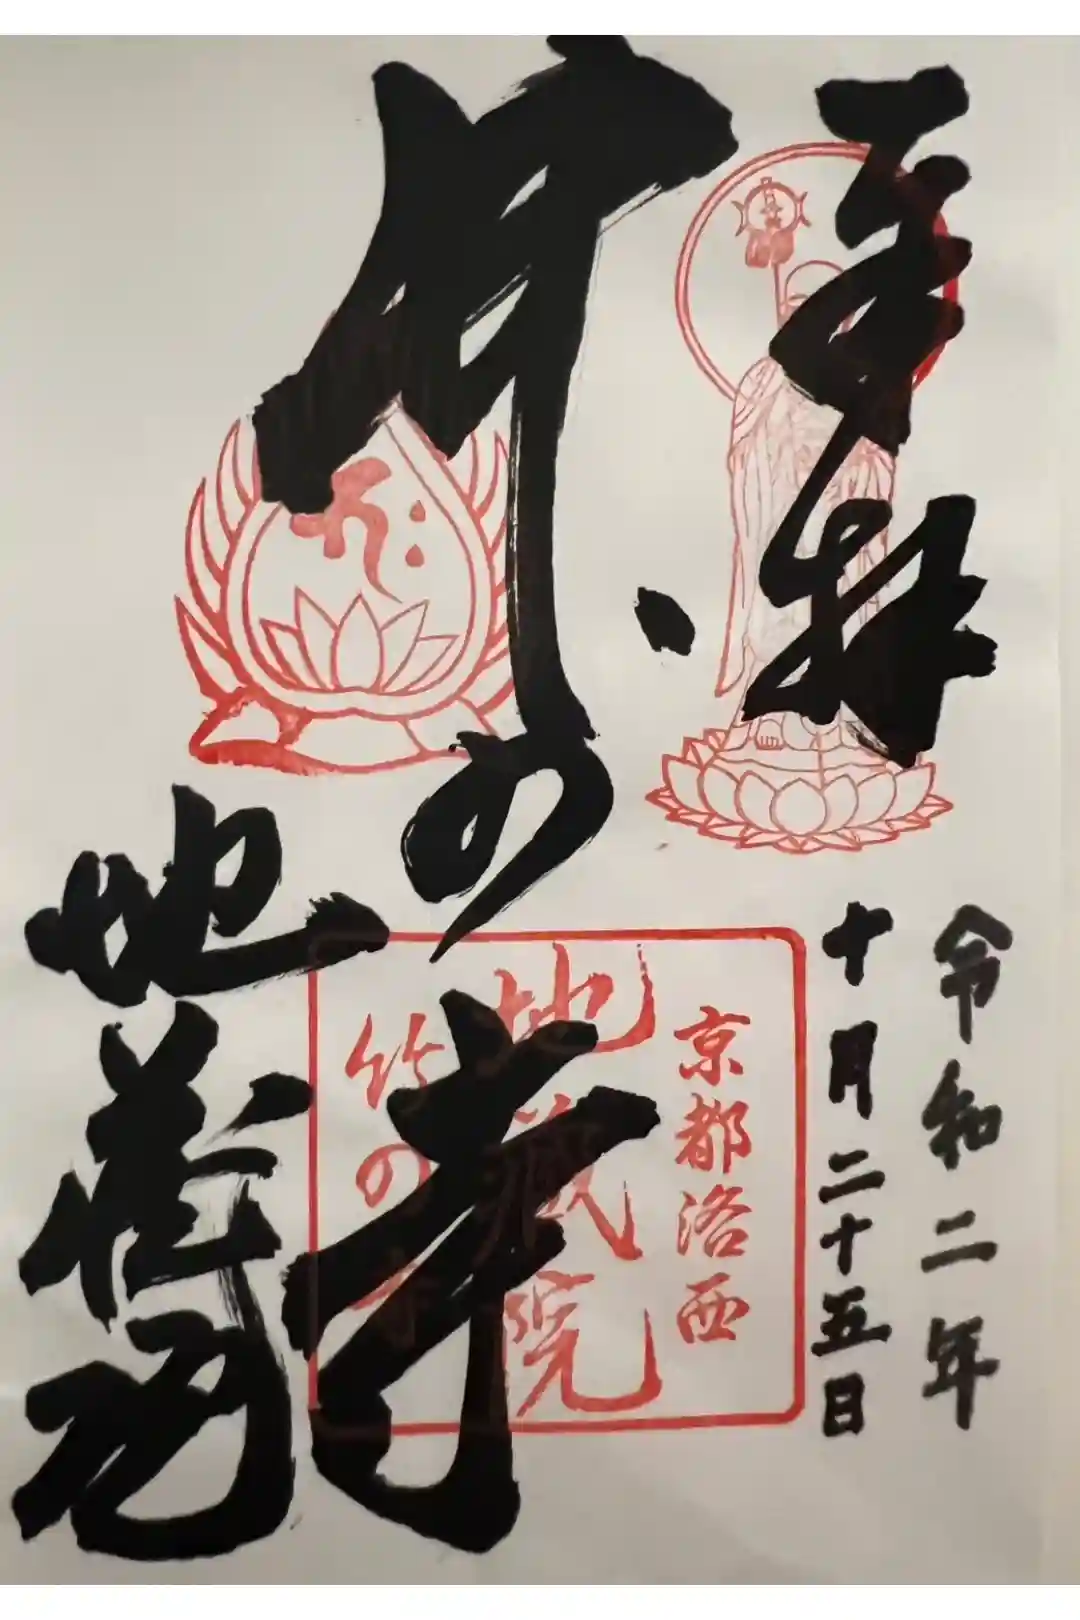 奉拝
令和二年
十月二十五日
竹の寺
地蔵院
京都洛西
地蔵院
竹の寺